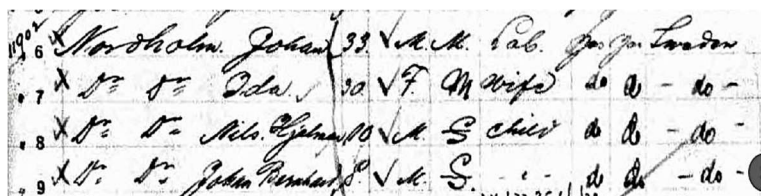 11902
6 X Nordholm Johan 33 √ M. M. Lab. yes yes Sweden
7 X Do Do Ida 30 √ F. M Wife do do - do -
8 X Do Do Nils Hjalmar 10 √ M. S child do do - do -
9 X Do Do Johan Bernhard 8 √ M. S. - " - do do - do -